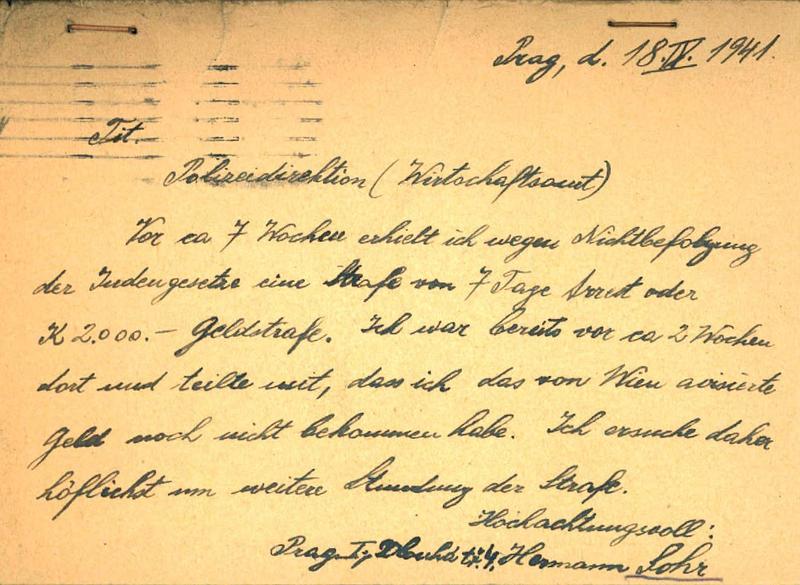 Prag, d. 18.IV. 1941.
Tit.
Polizeidirektion (Wirtschaftsamt)
Vor ca 7 Wochen erhielt ich wegen Nichtbefolgung
der Judengesetze eine Strafe von 7 Tage Arrest oder
K 2.000.— Geldstrafe. Ich war bereits vor ca 2 Wochen
dort und teilte mit, dass ich das von Wien avisierte
Geld noch nicht bekommen habe. Ich ersuche daher
höflichst um weitere Stundung der Strafe.
Hochachtungsvoll:
Prag I, Dlouhá tř. 4. Hermann Lohr